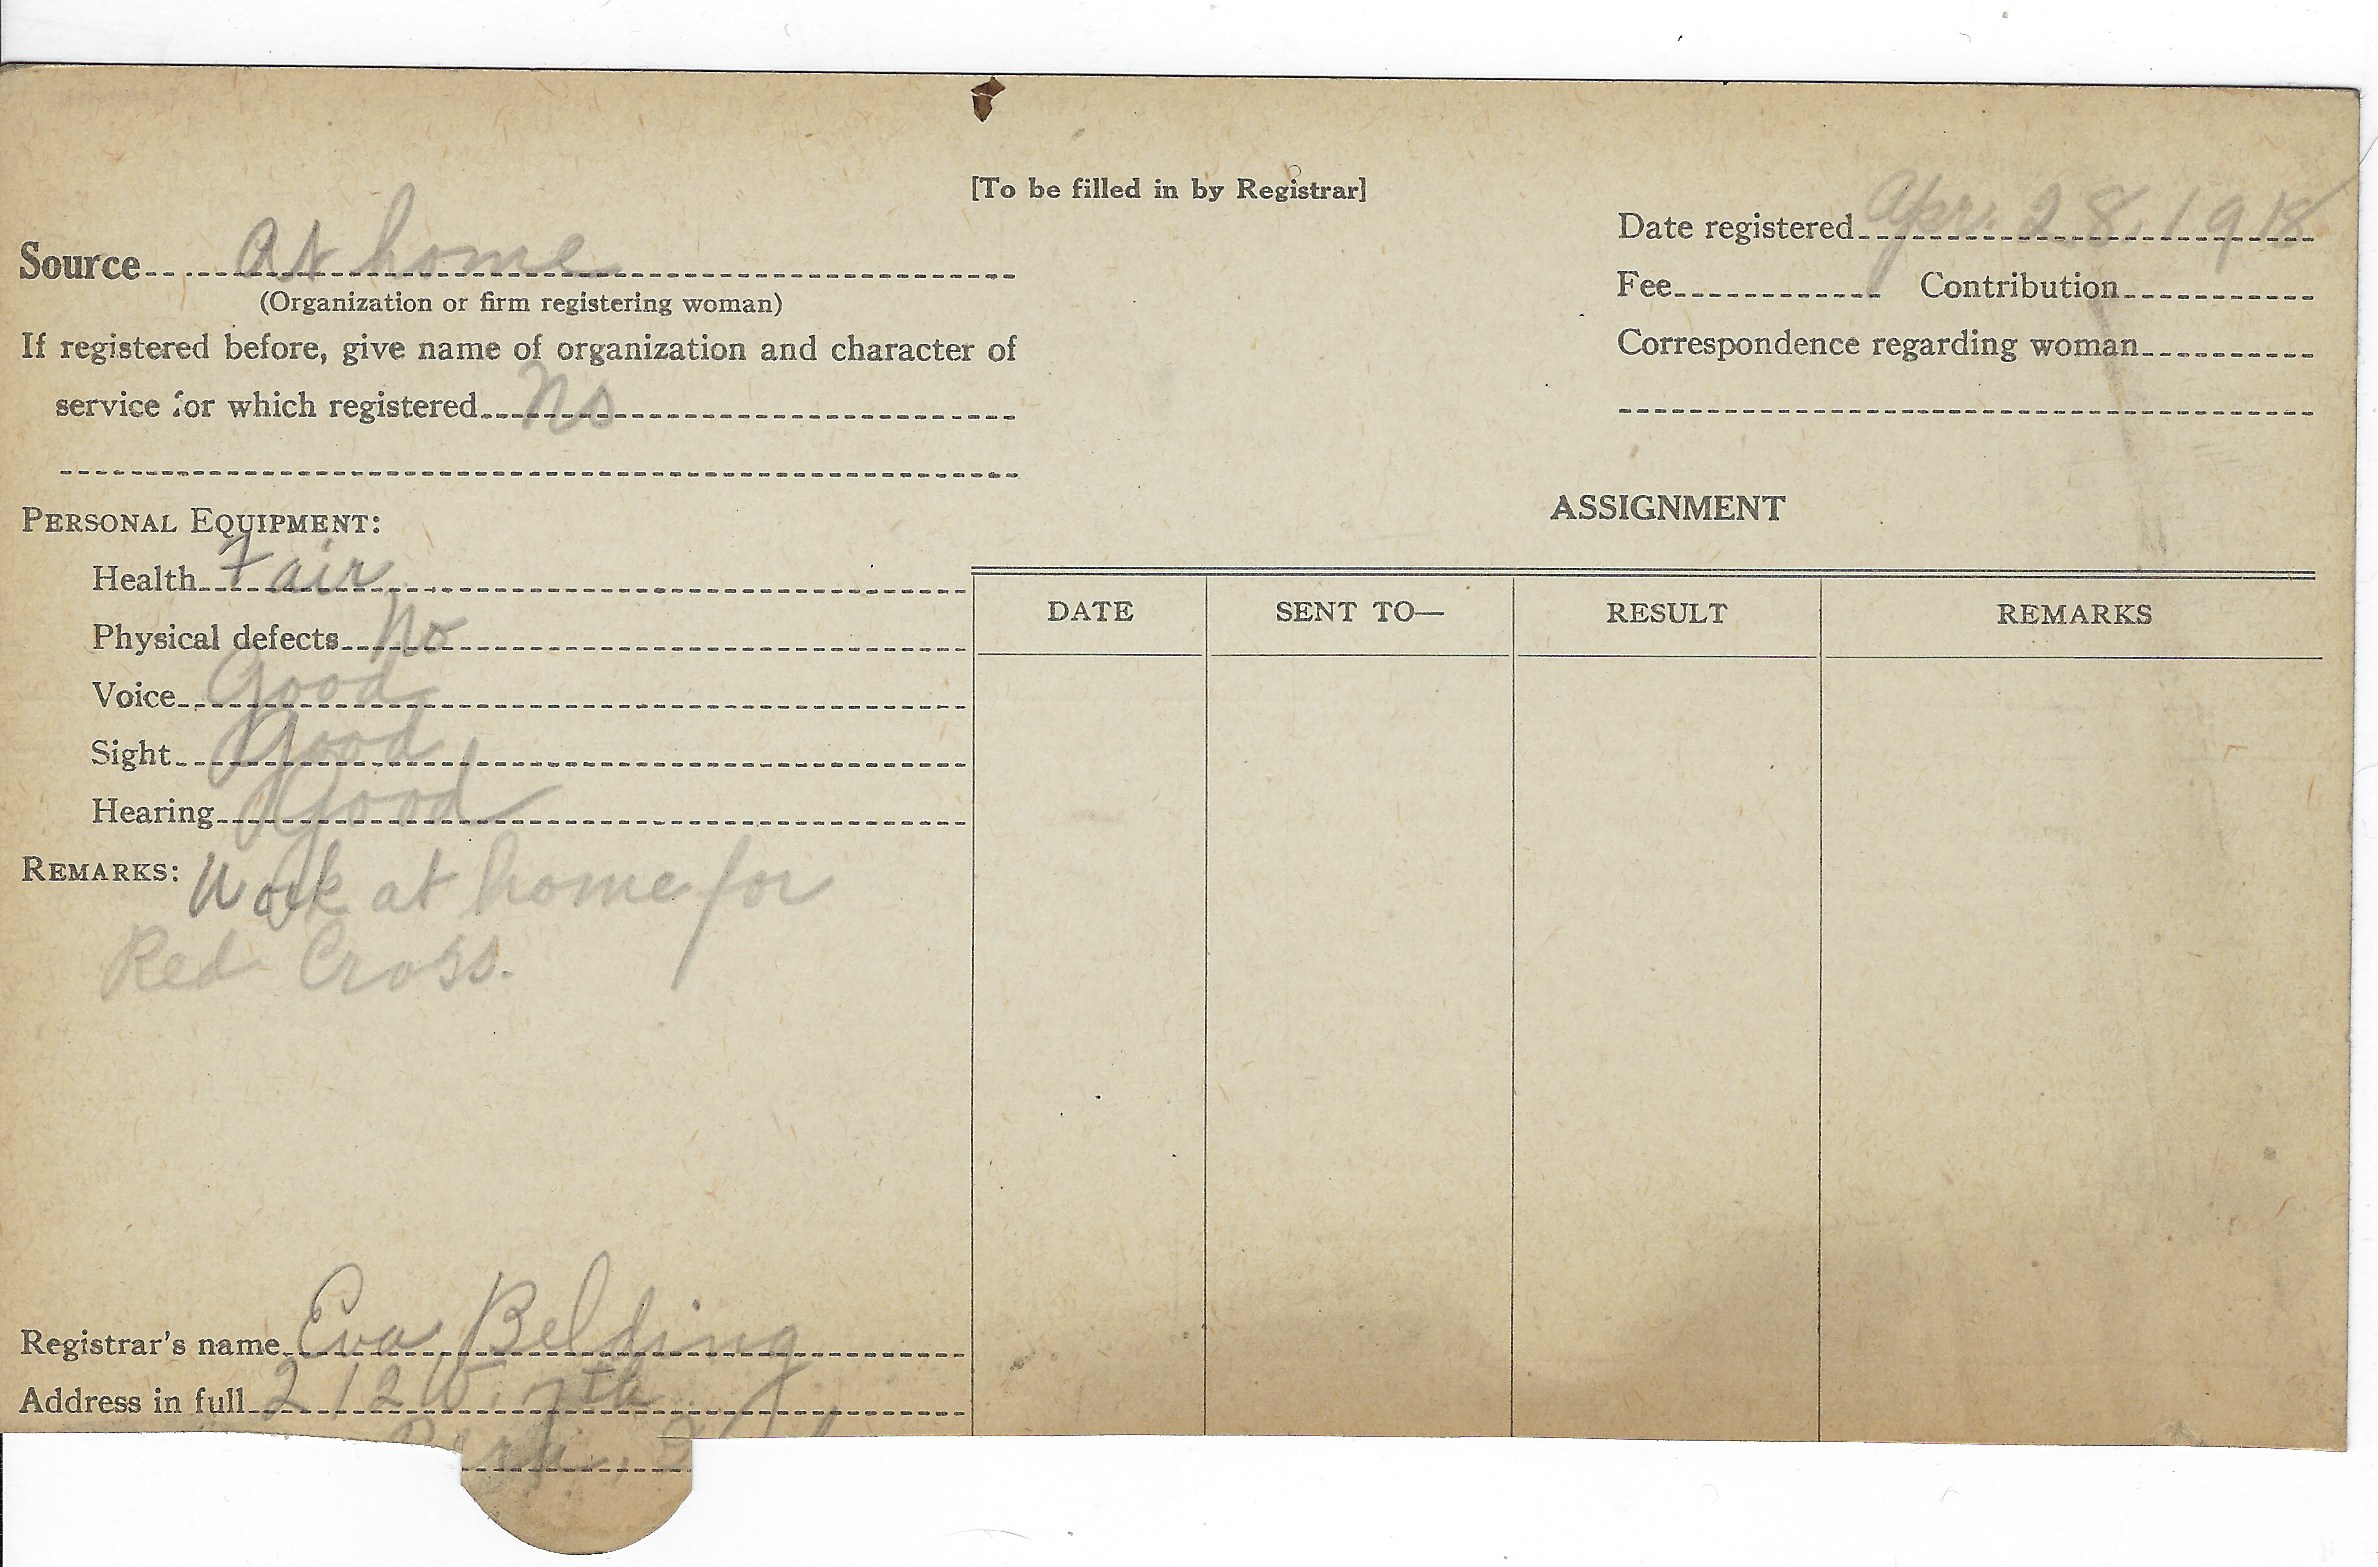 [To be filled in by Registrar]
Source At home
(Organization or firm registering woman)
If registered before, give name of organization and character of
service for which registered No
Date registered Apr. 28, 1918
Fee Contribution
Correspondence regarding woman
PERSONAL EQUIPMENT:
Health Fair
Physical defects No
Voice Good
Sight Good
Hearing Good
REMARKS: Work at home for
Red Cross.
ASSIGNMENT
DATE SENT TO— RESULT REMARKS
Registrar's name Eva Belding
Address in full 212 W. 7th